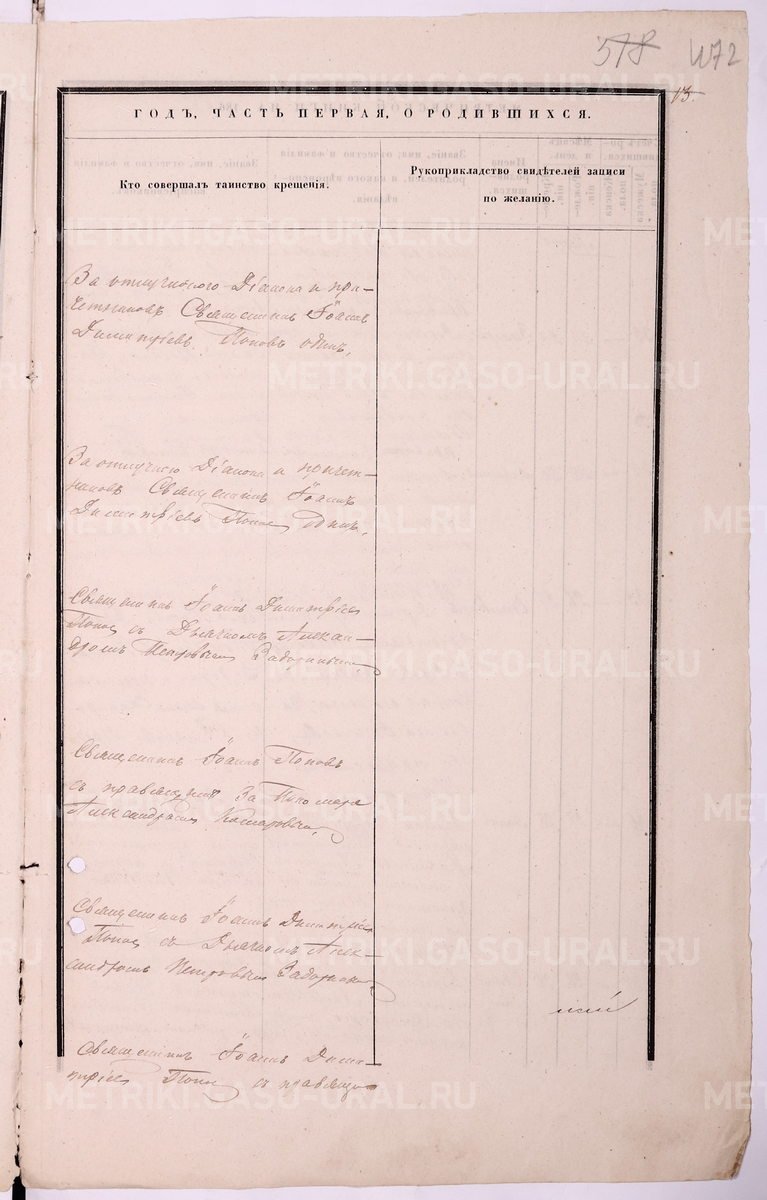 578 1172
13
ГОДЪ, ЧАСТЬ ПЕРВАЯ, О РОДИВШИХСЯ.
Кто совершалъ таинство крещенія.
Рукоприкладство свидѣтелей записи
по желанію.
За отлучкою Діакона и при-
четниковъ Священникъ Іоаннъ
Димитріевъ Поповъ одинъ.
За отлучкою Діакона и причет-
никовъ Священникъ Іоаннъ
Димитріевъ Поповъ одинъ.
Священникъ Іоаннъ Димитріевъ
Поповъ съ Дьячкомъ Алексан-
дромъ Петровымъ
Священникъ Іоаннъ Поповъ
съ правящимъ За Пономаря
Александромъ
Священникъ Іоаннъ Димитріевъ
Поповъ съ Дьячкомъ Алек-
сандромъ Петровымъ
Священникъ Іоаннъ Дими-
тріевъ Поповъ съ правящимъ
METRIKI.GASO-URAL.RU